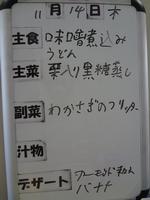 11月14日木
主食 味噌煮込み
うどん
主菜 栗入り黒糖蒸し
副菜 わかさぎのフリッター
汁物
デザート アーモンド
バナナ